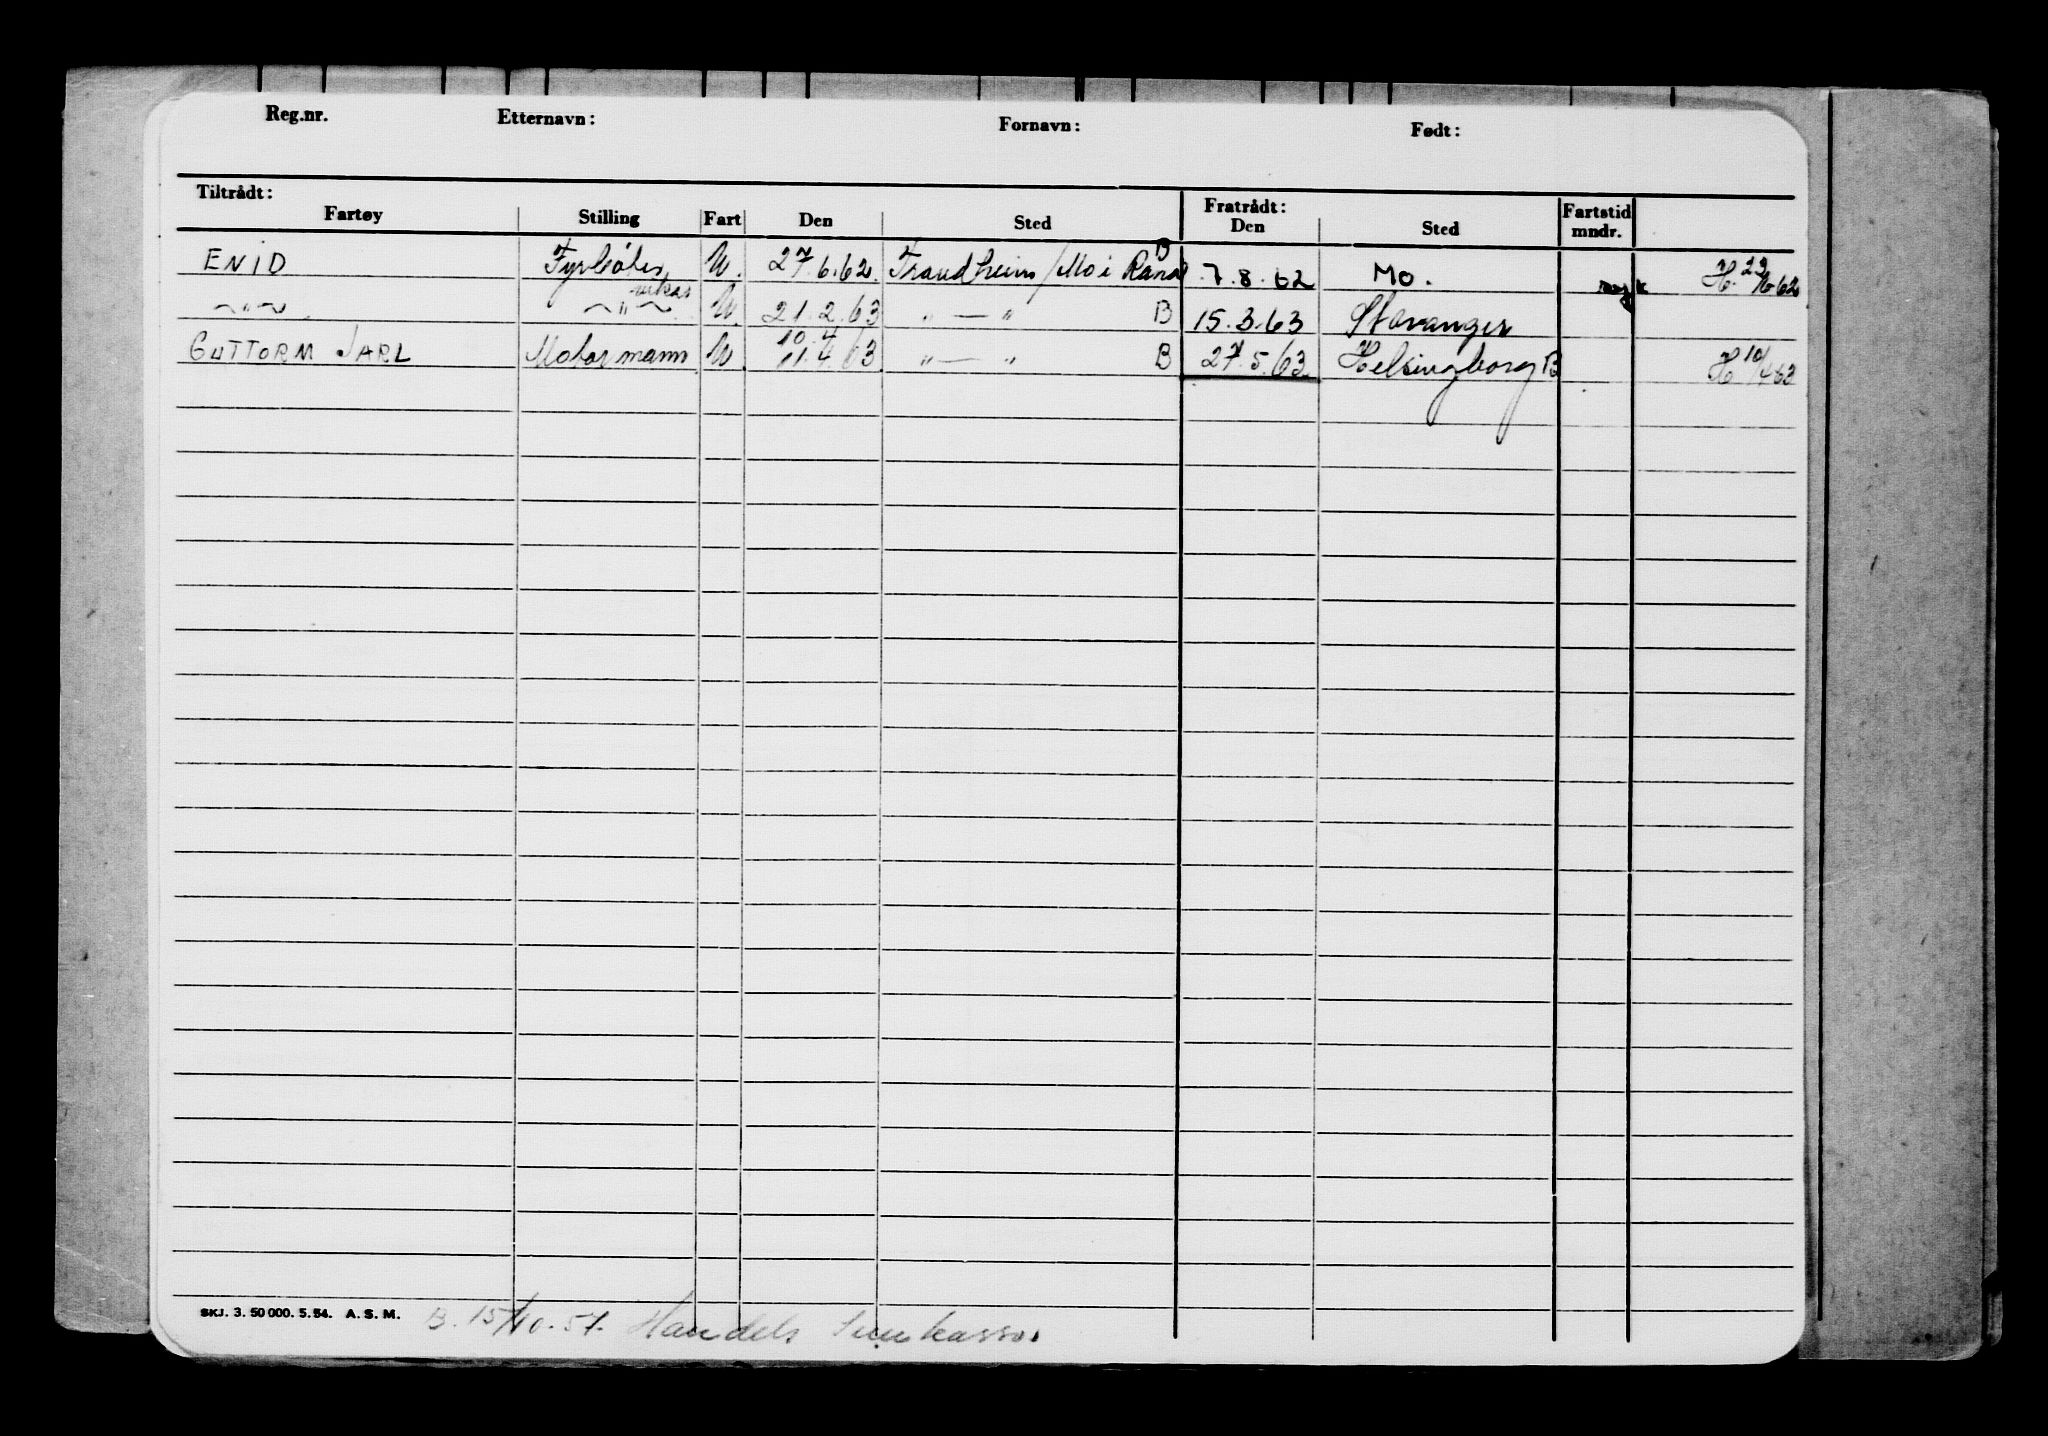 Reg.nr. Etternavn: Fornavn: Født:
Tiltrådt: Fratrådt:
Fartøy Stilling Fart Den Sted Den Sted Fartstid mndr.
ENID Fyrbøter U. 27.6.62. Trondheim/Mo i Rana B 7.8.62 Mo. H. 62
—"— —"— vikar U. 21.2.63 "—" B 15.3.63 Stavanger
10.4
GUTTORM JARL Motormann U. 11.4.63 "—" B 27.5.63 Helsingborg B H 10/4 63
SKJ. 3. 50 000. 5. 54. A. S. M. B. 15/10.57. Handels Inkasso.